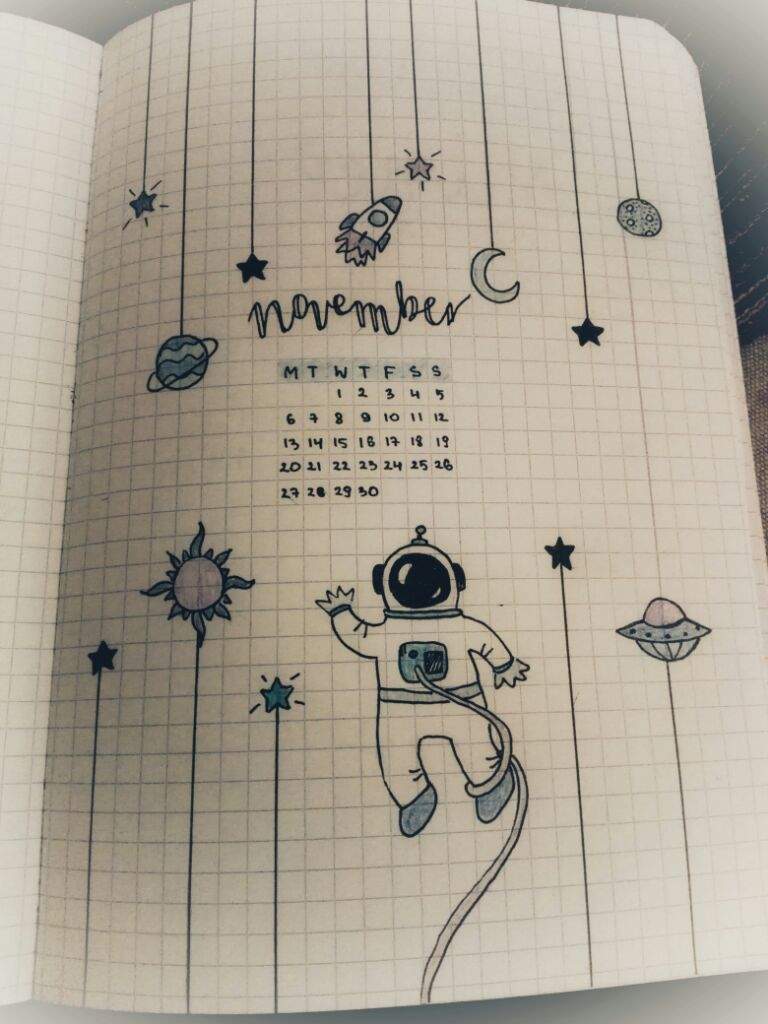 november
M T W T F S S
1 2 3 4 5
6 7 8 9 10 11 12
13 14 15 16 17 18 19
20 21 22 23 24 25 26
27 28 29 30